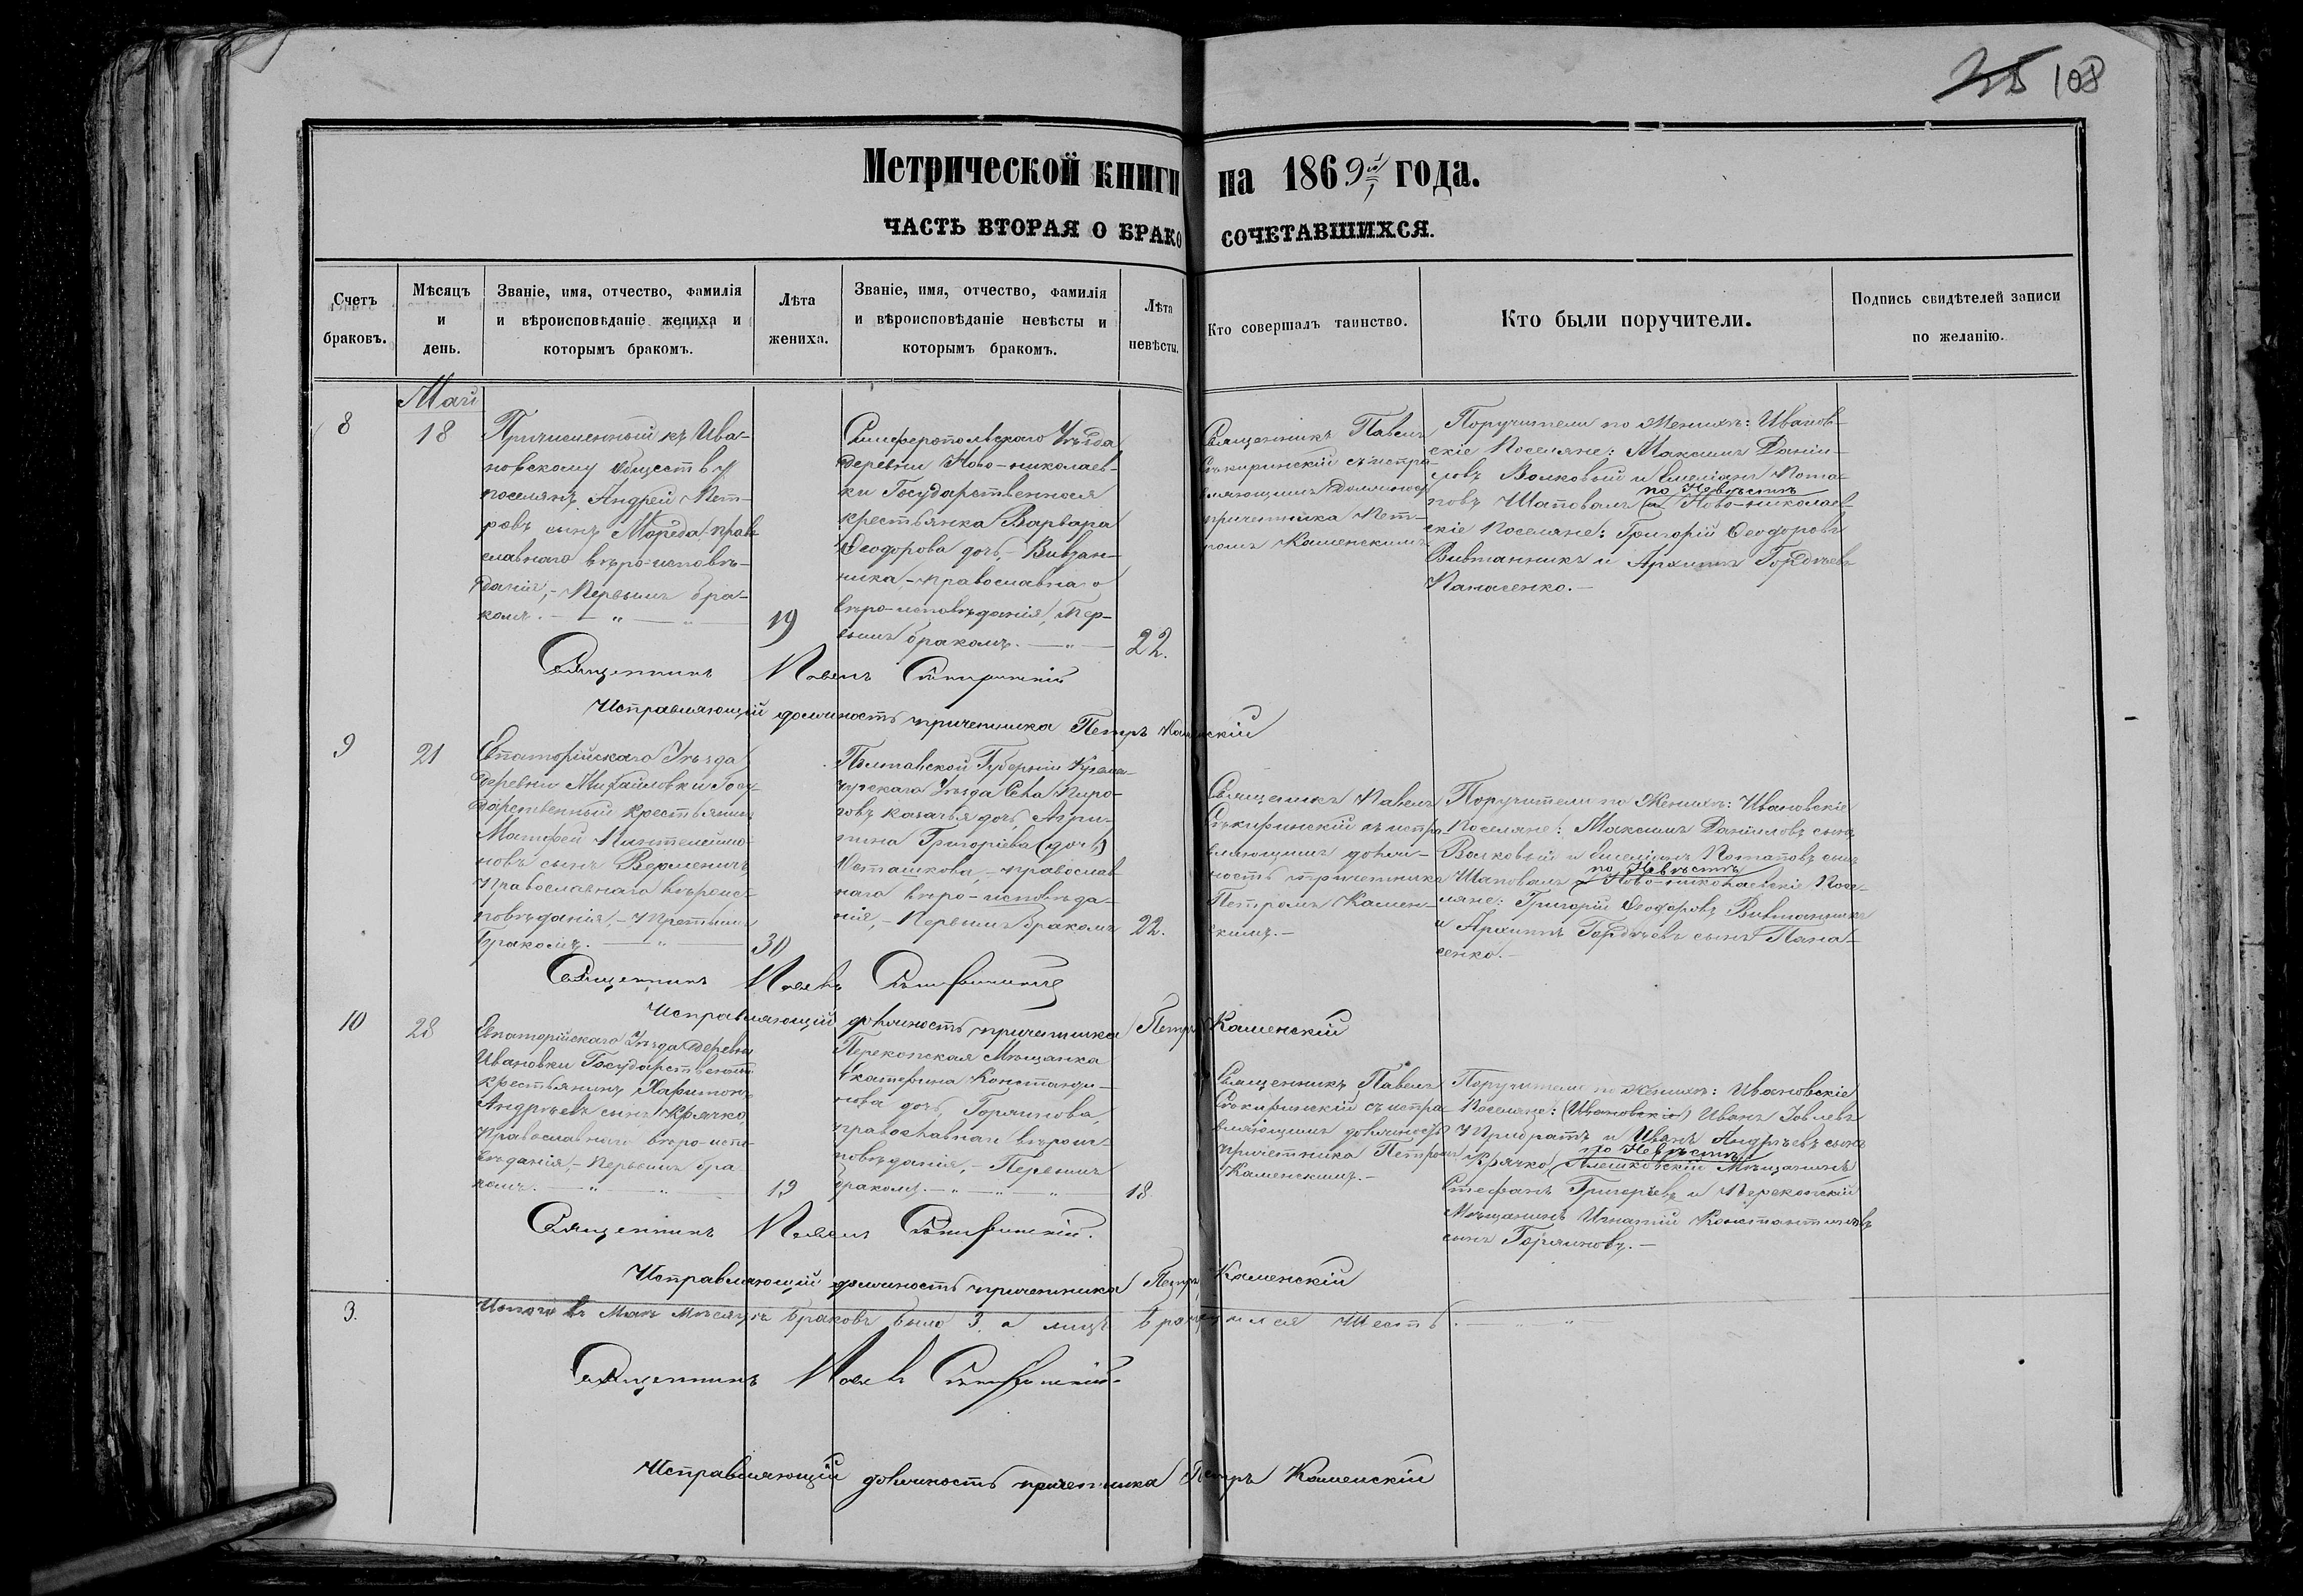 25 108
Метрической книги на 1869 года.
ЧАСТЬ ВТОРАЯ О БРАКОСОЧЕТАВШИХСЯ.
Счетъ
браковъ.
Мѣсяцъ
и
день.
Званіе, имя, отчество, фамилія
и вѣроисповѣданіе жениха и
которымъ бракомъ.
Лѣта
жениха.
Званіе, имя, отчество, фамилія
и вѣроисповѣданіе невѣсты и
которымъ бракомъ.
Лѣта
невѣсты.
Кто совершалъ таинство.
Кто были поручители.
Подпись свидѣтелей записи
по желанію.
Маій
8
18
Причисленный къ Ива-
новскому обществу
поселянъ Андрей Пет-
ровъ сынъ Морева, право-
славнаго вѣро-исповѣ-
данія,- Первымъ бра-
комъ.
19
Симферопольскаго Уѣзда
деревни Ново-николаев-
ки Государственная
крестьянка Варвара
Ѳеодорова дочь,-
ника,- православнаго
вѣро-исповѣданія, Пер-
вымъ бракомъ.
22.
Священникъ Павелъ
Сѣкиринскій съ испра-
вляющимъ должность
причетника Пет-
ромъ Каменскимъ.
Поручители по Женихѣ: Иванов-
скіе Поселяне: Максимъ Даніи-
ловъ Волковый и Емеліанъ Пота-
повъ Шаповалъ по Невѣстѣ Ново-николаев-
скіе Поселяне: Григорій Ѳеодоровъ
Вивтанникъ и Архипъ Гордѣевъ
Панасенко.-
Священникъ Павелъ Сѣкиринскій
Исправляющій должность причетника Петръ Каменскій
9
21
Евпаторійскаго Уѣзда
деревни Михайловки Госу-
дарственный Крестьянинъ
Матфей Пантелеймо-
новъ сынъ
Православнаго вѣроис-
повѣданія,- Третьимъ
бракомъ.
30
Полтавской Губерніи Кремен-
чугскаго Уѣзда Села Пиро-
говъ казачья дочь, Агри-
пина Григоріева (дочь)
Осташкова,- православ-
наго вѣро-исповѣда-
нія,- Первымъ бракомъ
22.
Священникъ Павелъ
Сѣкиринскій съ испра-
вляющимъ долж-
ность причетника
Петромъ Камен-
скимъ.-
Поручители по Женихѣ: Ивановскіе
Поселяне: Максимъ Даніиловъ сынъ
Волковый и Емеліанъ Потаповъ сынъ
Шаповалъ по Невѣстѣ Ново-николаевскіе Посе-
ляне: Григорій Ѳеодоровъ Вивтанникъ
и Архипъ Гордѣевъ сынъ Пана-
сенко.-
Священникъ Павелъ Сѣкиринскій
Исправляющій должность причетника Петръ Каменскій
10
28
Евпаторійскаго Уѣзда деревни
Ивановки Государственный
крестьянинъ Харитонъ
Андрѣевъ сынъ Крячко,
Православнаго вѣро-испо-
вѣданія,- Первымъ бра-
комъ.
19
Перекопская Мѣщанка
Екатерина Константи-
нова дочь, Горяинова,
православнаго вѣроис-
повѣданія,- Первымъ
бракомъ.
18
Священникъ Павелъ
Сѣкиринскій съ испра-
вляющимъ должность
причетника Петромъ
Каменскимъ.-
Поручители по Женихѣ: Ивановскіе
Поселяне: (Ивановскіе) Иванъ Іовлевъ
Придратъ и Иванъ Андрѣевъ сынъ
Крячко, по Невѣстѣ Алешковскій Мѣщанинъ
Стефанъ Григорьевъ и Перекопскій
Мѣщанинъ Игнатій Константиновъ
сынъ Горяиновъ.-
Священникъ Павелъ Сѣкиринскій.
Исправляющій должность причетника Петръ Каменскій
3.
Итого въ Маѣ мѣсяцѣ браковъ было 3. а лицъ брачился шесть.
Священникъ Павелъ Сѣкиринскій.
Исправляющій должность причетника Петръ Каменскій